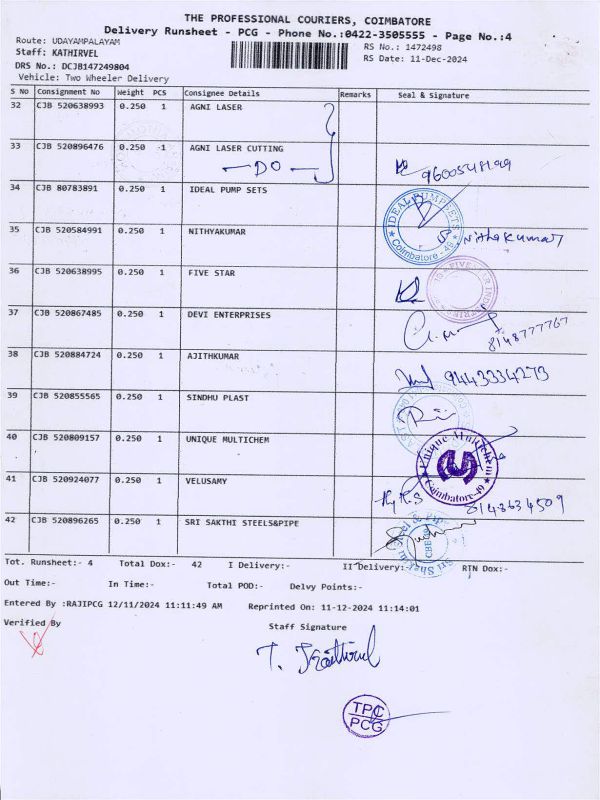 THE PROFESSIONAL COURIERS, COIMBATORE
Delivery Runsheet - PCG - Phone No.:0422-3505555 - Page No.:4
Route: UDAYAMPALAYAM
RS No.: 1472498
Staff: KATHIRVEL
RS Date: 11-Dec-2024
DRS No.: DCJB147249804
Vehicle: Two Wheeler Delivery
S No Consignment No Weight PCS Consignee Details Remarks Seal & Signature
32 CJB 520638993 0.250 1 AGNI LASER
33 CJB 520896476 0.250 1 AGNI LASER CUTTING
DO
34 CJB 80783891 0.250 1 IDEAL PUMP SETS
IDEAL PUMP SETS
Coimbatore - 49
35 CJB 520584991 0.250 1 NITHYAKUMAR
36 CJB 520638995 0.250 1 FIVE STAR
37 CJB 520867485 0.250 1 DEVI ENTERPRISES
8148777767
38 CJB 520884724 0.250 1 AJITHKUMAR
9443334273
39 CJB 520855565 0.250 1 SINDHU PLAST
40 CJB 520809157 0.250 1 UNIQUE MULTICHEM
Unique Multichem
Coimbatore-49
41 CJB 520924077 0.250 1 VELUSAMY
8148634509
42 CJB 520896265 0.250 1 SRI SAKTHI STEELS&PIPE
Tot. Runsheet:- 4 Total Dox:- 42 I Delivery:- II Delivery:- RTN Dox:-
Out Time:- In Time:- Total POD:- Delvy Points:-
Entered By :RAJIPCG 12/11/2024 11:11:49 AM Reprinted On: 11-12-2024 11:14:01
Verified By
Staff Signature
TPC
PCG